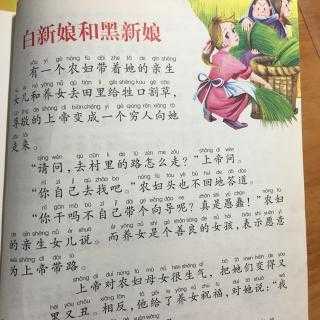 白新娘和黑新娘
有一个农妇带着她的亲生
女儿和养女去田里给牲口割草，
尊敬的上帝变成一个穷人向她
走来。
“请问，去村里的路怎么走？”上帝问。
“你自己去找吧。”农妇头也不回地答道。
“你干吗不自己带个向导呢？真是愚蠢！”农妇
的亲生女儿说。而养女是个善良的女孩，表示愿意
为上帝带路。
上帝对农妇母女很生气，把她们变得又
黑又丑。相反，他给了养女祝福，对她说：“我